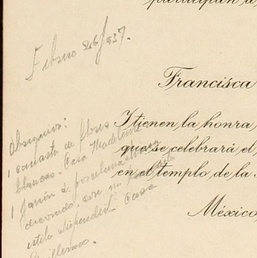 participan a
Febrero 26/927.
Francisca
Obsequios:
1 canasta de flores
blancas. Casa Matsumoto
1 jarrón de porcelana
decorado, con
estilo Casa
Y tienen la honra,
que se celebrará el
en el templo de la
México,